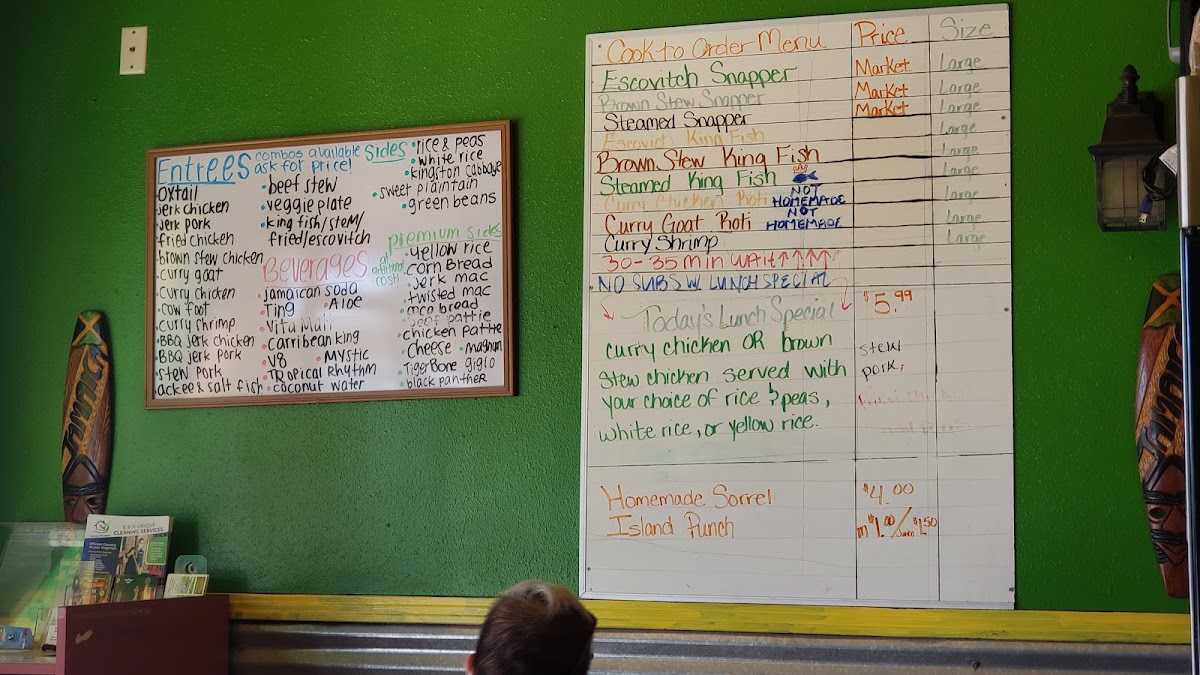 Entrees combos available
ask for price!
oxtail
Jerk chicken
Jerk pork
fried chicken
brown stew chicken
curry goat
curry chicken
cow foot
curry shrimp
BBQ jerk chicken
BBQ jerk pork
stew pork
ackee & salt fish
beef stew
veggie plate
king fish/stem/
fried/escovitch
Beverages
Jamaican soda
Ting
Aloe
Vita Malt
carribean king
V8
MYSTIC
TROpical Rhythm
coconut water
Sides
rice & peas
white rice
kingston cabbage
sweet plaintain
green beans
premium sides
at
additional
cost!
yellow rice
corn Bread
Jerk mac
twisted mac
coco bread
beef pattie
chicken pattie
cheese
magnum
TigerBone giglo
black panther
Cook to Order Menu Price Size
Escovitch Snapper Market Large
Brown Stew Snapper Market Large
Steamed Snapper Market Large
Escovich King Fish Large
Brown Stew King Fish Large
Steamed King Fish Large
Curry Chicken Roti NOT HOMEMADE Large
Curry Goat Roti NOT HOMEMADE Large
Curry Shrimp Large
30-35 min WAIT↑↑↑↑
NO SUBS W/ LUNCH SPECIAL
Today's Lunch Special $5.99
curry chicken OR brown
stew chicken served with
your choice of rice & peas,
white rice, or yellow rice.
stew
pork,
Homemade Sorrel $4.00
Island Punch $1.00/ $1.50
JAMAICA
E & H UNIQUE
CLEANING SERVICES